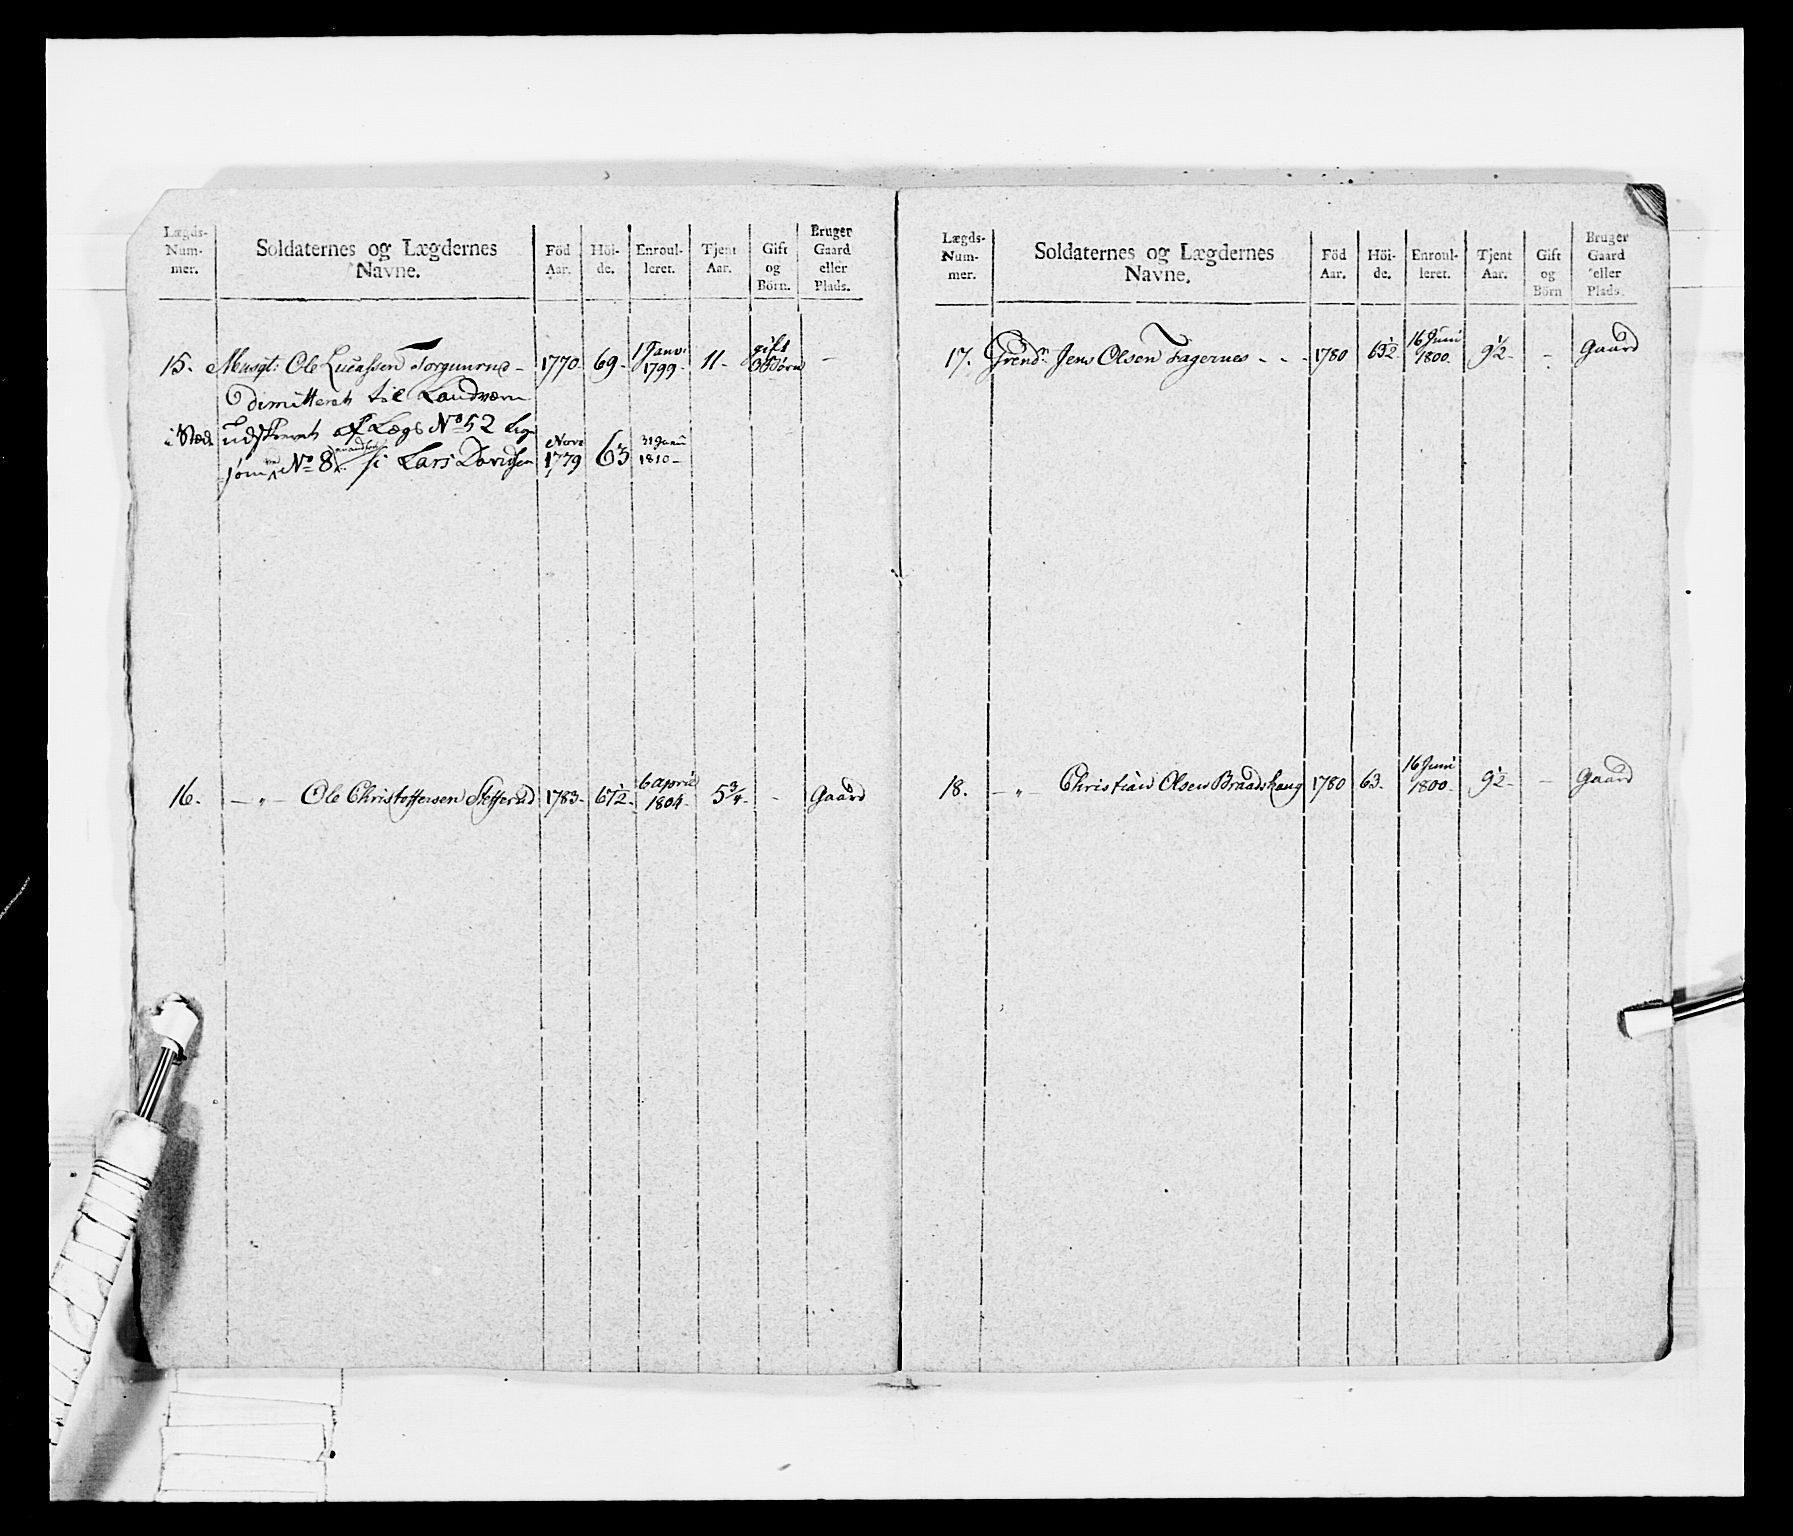 Lægds-Num-mer. | Soldaternes og Lægdernes Navne. | Föd Aar. | Höi-de. | Enroul-leret. | Tjent Aar. | Gift og Börn. | Bruger Gaard eller Plads.
15. Musqt: Ole Lucassen Torgunrud - 1770 - 69 - 1 Janv: 1799 - 11 - gift 3 Börn -
dimitteret til Landværn
i Sted udskrevet af Lægs No 52
som No 8 Lars Davidsen Novr 1779 63 31 Janu 1810 -
16. - " - Ole Christoffersen Stefferud 1783 - 67 1/2 - 6 april 1804 - 5 3/4 - - Gaard
Lægds-Num-mer. | Soldaternes og Lægdernes Navne. | Föd Aar. | Höi-de. | Enroul-leret. | Tjent Aar. | Gift og Börn | Bruger Gaard eller Plads.
17. Grendr Jens Olsen Fagernes - - - 1780 63 1/2 - 16 Juni 1800 - 9 1/2 - - Gaard
18. - " - Christian Olsen Braadshaug 1780 63 - 16 Juni 1800 - 9 1/2 - - Gaard